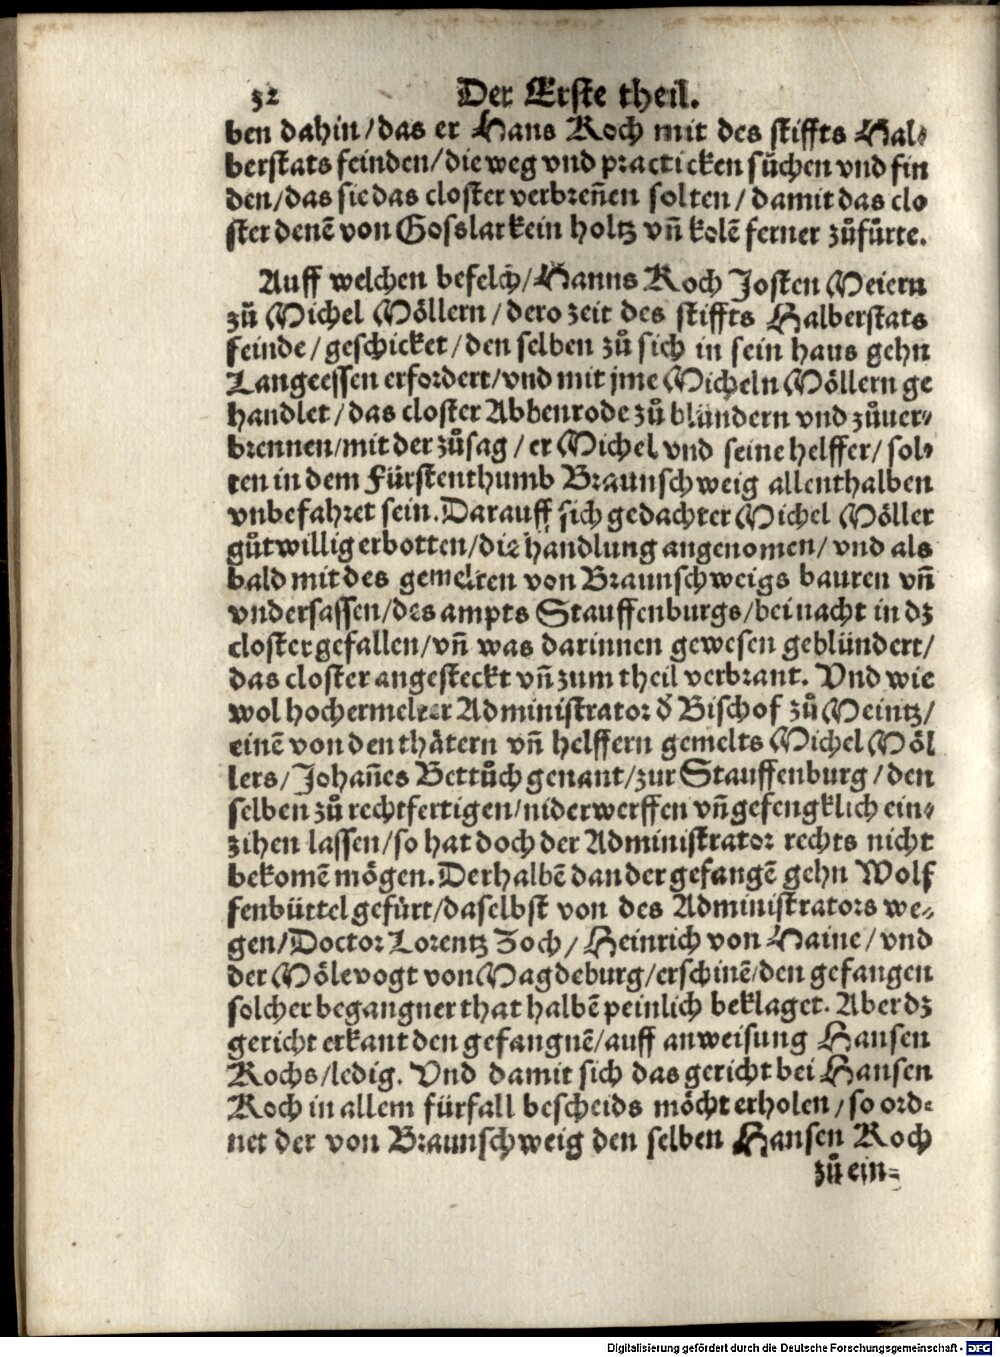 32 Der Erste theil.
ben dahin/das er Hans Koch mit des stiffts Hal-
berstats feinden/die weg vnd practicken sůchen vnd fin
den/das sie das closter verbreñen solten/damit das clo
ster denē von Gosslar kein holtz vñ kolē ferner zůfůrte.
Auff welchen befelch/Hanns Koch Josten Meiern
zů Michel Möllern/dero zeit des stiffts Halberstats
feinde/geschicket/den selben zů sich in sein haus gehn
Langeessen erfordert/vnd mit jme Micheln Möllern ge
handlet/das closter Abbenrode zů blündern vnd zůuer-
brennen/mit der zůsag/er Michel vnd seine helffer/sol-
ten in dem Fürstenthumb Braunschweig allenthalben
vnbefahret sein. Darauff sich gedachter Michel Möller
gůtwillig erbotten/die handlung angenomen/vnd als
bald mit des gemelten von Braunschweigs bauren vñ
vndersassen/des ampts Stauffenburgs/bei nacht in dz
closter gefallen/vñ was darinnen gewesen geblündert/
das closter angesteckt vñ zum theil verbrant. Vnd wie
wol hochermelter Administrator d̕ Bischof zů Meintz/
einē von den thätern vñ helffern gemelts Michel Möl
lers/Johañes Bettůch genant/zur Stauffenburg/den
selben zů rechtfertigen/niderwerffen vñ gefengklich ein-
zihen lassen/so hat doch der Administrator rechts nicht
bekomē mögen. Derhalbē dan der gefangē gehn Wolf
fenbüttel gefürt/daselbst von des Administrators we-
gen/Doctor Lorentz Zoch/Heinrich von Haine/vnd
der Mölevogt von Magdeburg/erschinē/den gefangen
solcher begangner that halbē peinlich beklaget. Aber dz
gericht erkant den gefangnē/auff anweisung Hansen
Kochs/ledig. Vnd damit sich das gericht bei Hansen
Koch in allem fürfall bescheids möcht erholen/so ord-
net der von Braunschweig den selben Hansen Koch
zů ein-
Digitalisierung gefördert durch die Deutsche Forschungsgemeinschaft - DFG